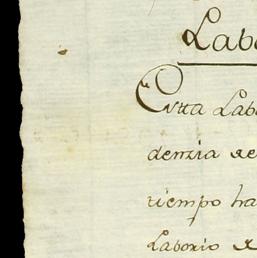 Labo
Esta Labo
denzia se
tiempo ha
Laborio